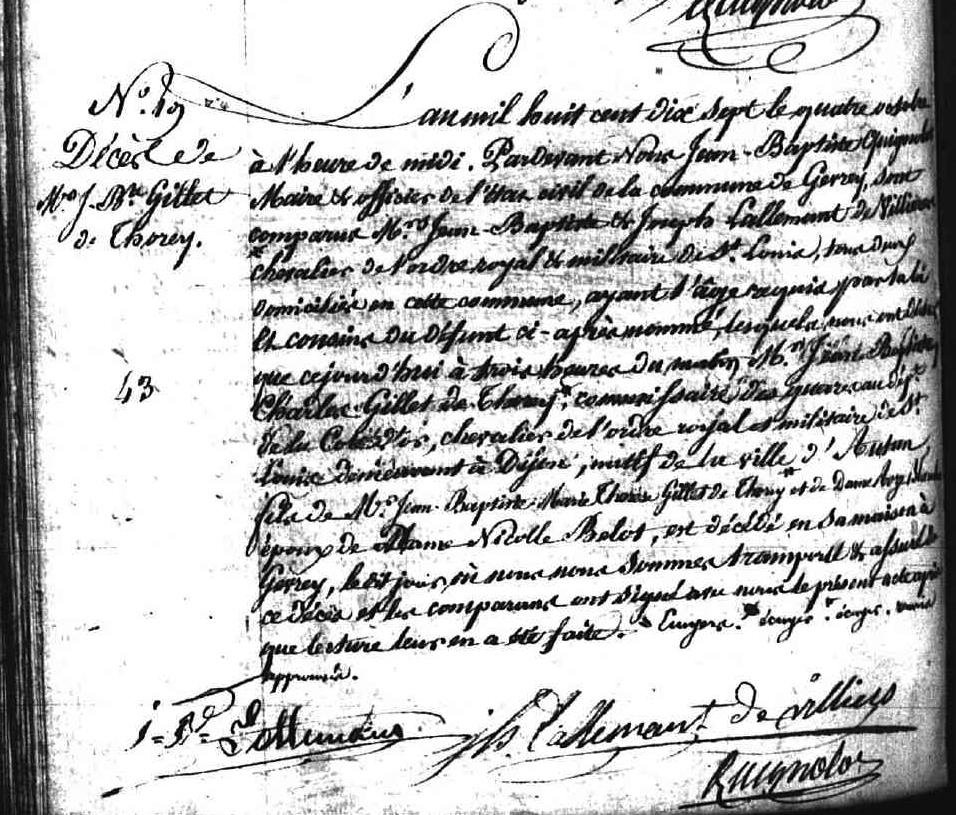 N.º 19
Décès de
M.r J. B.te Gillet
de Thorey.
43
L'an mil huit cent dix sept le quatre octobre
à l'heure de midi. Pardevant Nous Jean-Baptiste Quignolot
Maire & officier de l'état civil de la commune de Gevrey, sont
comparus M.rs Jean-Baptiste & Joseph Lallemant de Villiers
chevalier de l'ordre royal & militaire de St. Louis, tous deux
domiciliés en cette commune, ayant l'âge requis par la loi
Et cousins du défunt ci-après nommé, lesquels nous ont déclaré
que cejourd'hui à trois heures du matin M.r Jean Baptiste
Charles Gillet de Thorey, commissaire des guerres au dép.t
de la Côte d'or, chevalier de l'ordre royal et militaire de St.
Louis demeurant à Dijon, natif de la ville d'Autun,
fils de M.r Jean-Baptiste Marie Gillet de Thorey et de Dame
époux de Dame Nicolle Belot, est décédé en sa maison à
Gevrey, ledit jour, où nous nous sommes transporté & assuré de
ce décès et les comparans ont signé avec nous le présent acte après
que lecture leur en a été faite.
approuvés.
J-B Lallemant
Jh. Lallemant de Villiers
Quignolot